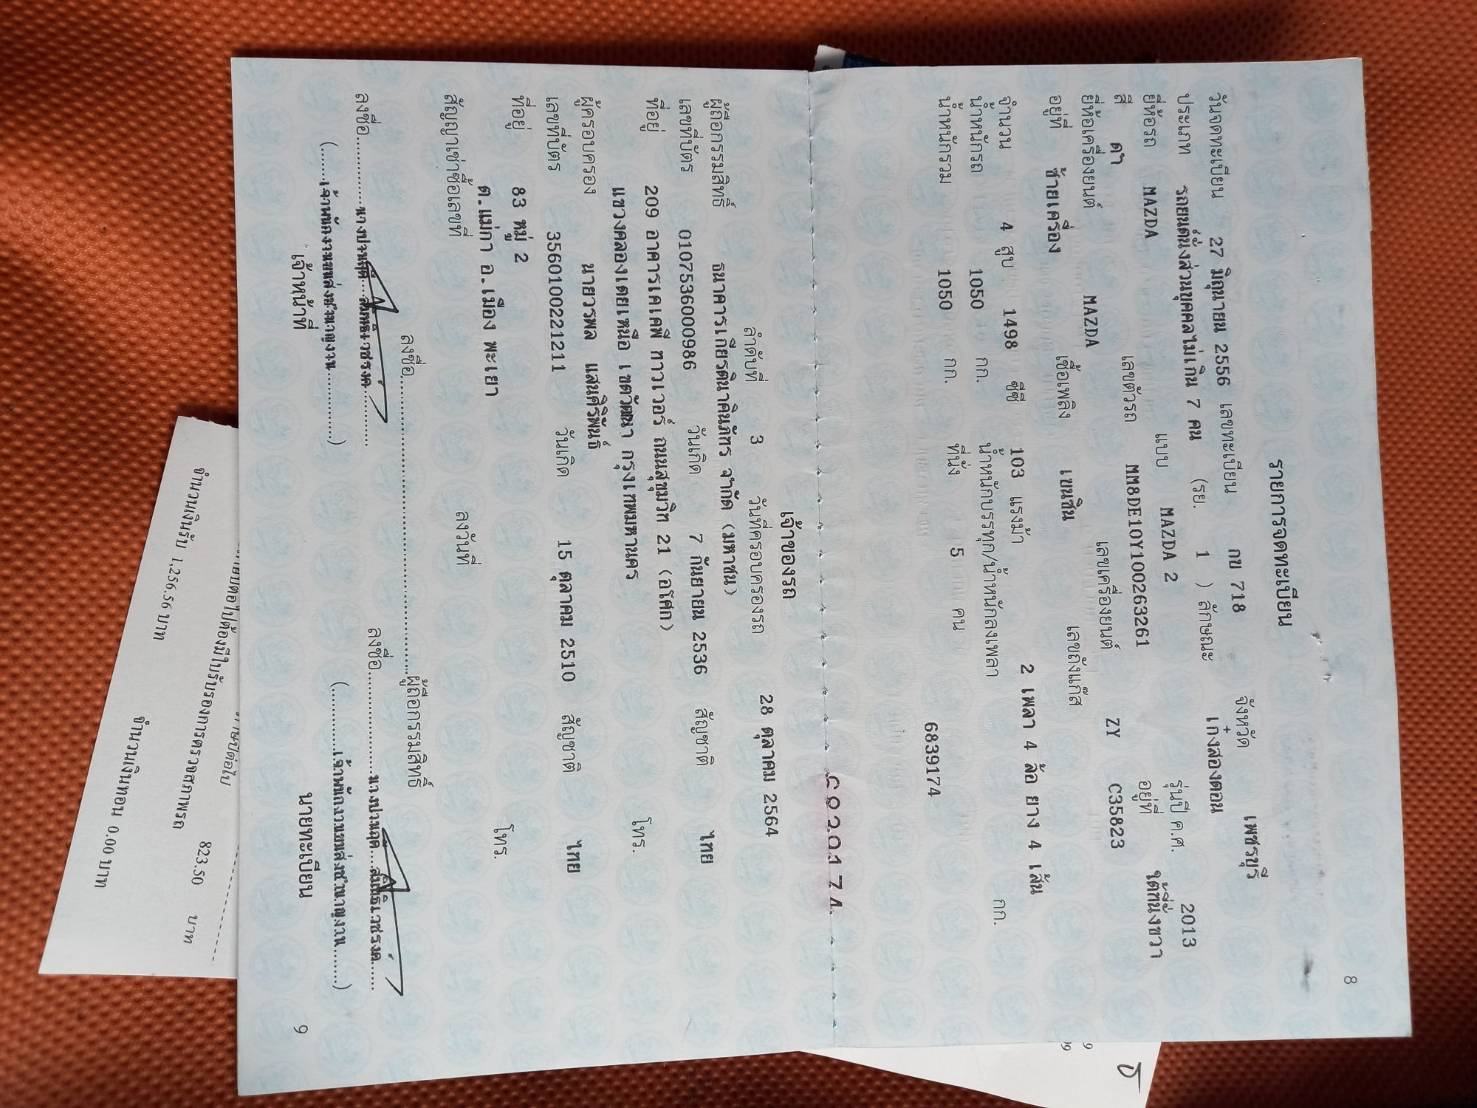 8
รายการจดทะเบียน
วันจดทะเบียน 27 มิถุนายน 2556 เลขทะเบียน กข 718 จังหวัด เพชรบุรี
ประเภท รถยนต์นั่งส่วนบุคคลไม่เกิน 7 คน (รย. 1 ) ลักษณะ เก๋งสองตอน
ยี่ห้อรถ MAZDA แบบ MAZDA 2 รุ่นปี ค.ศ. 2013
สี ดำ เลขตัวรถ MM8DE10Y100263261 อยู่ที่ ใต้ที่นั่งขวา
ยี่ห้อเครื่องยนต์ MAZDA เลขเครื่องยนต์ ZY C35823
อยู่ที่ ซ้ายเครื่อง เชื้อเพลิง เบนซิน เลขถังแก๊ส
จำนวน 4 สูบ 1498 ซีซี 103 แรงม้า 2 เพลา 4 ล้อ ยาง 4 เส้น
น้ำหนักรถ 1050 กก. น้ำหนักบรรทุก/น้ำหนักลงเพลา กก.
น้ำหนักรวม 1050 กก. ที่นั่ง 5 คน
6839174
เจ้าของรถ
ลำดับที่ 3 วันที่ครอบครองรถ 28 ตุลาคม 2564
ผู้ถือกรรมสิทธิ์ ธนาคารเกียรตินาคินภัทร จำกัด (มหาชน)
เลขที่บัตร 0107536000986 วันเกิด 7 กันยายน 2536 สัญชาติ ไทย
ที่อยู่ 209 อาคารเคเคพี ทาวเวอร์ ถนนสุขุมวิท 21 (อโศก)
แขวงคลองเตยเหนือ เขตวัฒนา กรุงเทพมหานคร โทร.
ผู้ครอบครอง นายวรพล แสนศิริพันธ์
เลขที่บัตร 3560100221211 วันเกิด 15 ตุลาคม 2510 สัญชาติ ไทย
ที่อยู่ 83 หมู่ 2
ต.แม่กา อ.เมือง พะเยา โทร.
สัญญาเช่าซื้อเลขที่ ลงวันที่
ลงชื่อ ผู้ถือกรรมสิทธิ์
ลงชื่อ ลงชื่อ
เจ้าหน้าที่ นายทะเบียน
9
823.50 บาท
จำนวนเงินรับ 1,256.56 บาท จำนวนเงินทอน 0.00 บาท